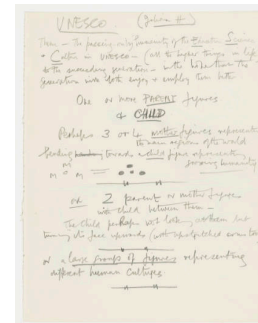 UNESCO (Julian H)
Theme – the passing on by humanity of the
& Culture in UNESCO – (all the higher things in life
to the succeeding generation – with the hope that the
generation will both enjoy & employ them better
One or more PARENT figures
& CHILD
Perhaps 3 or 4 mother figures represent
the main regions of the world
bending towards a child figure representing
growing humanity
or 2 parent or mother figures
with child between them –
The child perhaps not looking at them but
turning its face upwards (with outstretched arms too
or a large group of figures representing
different human cultures